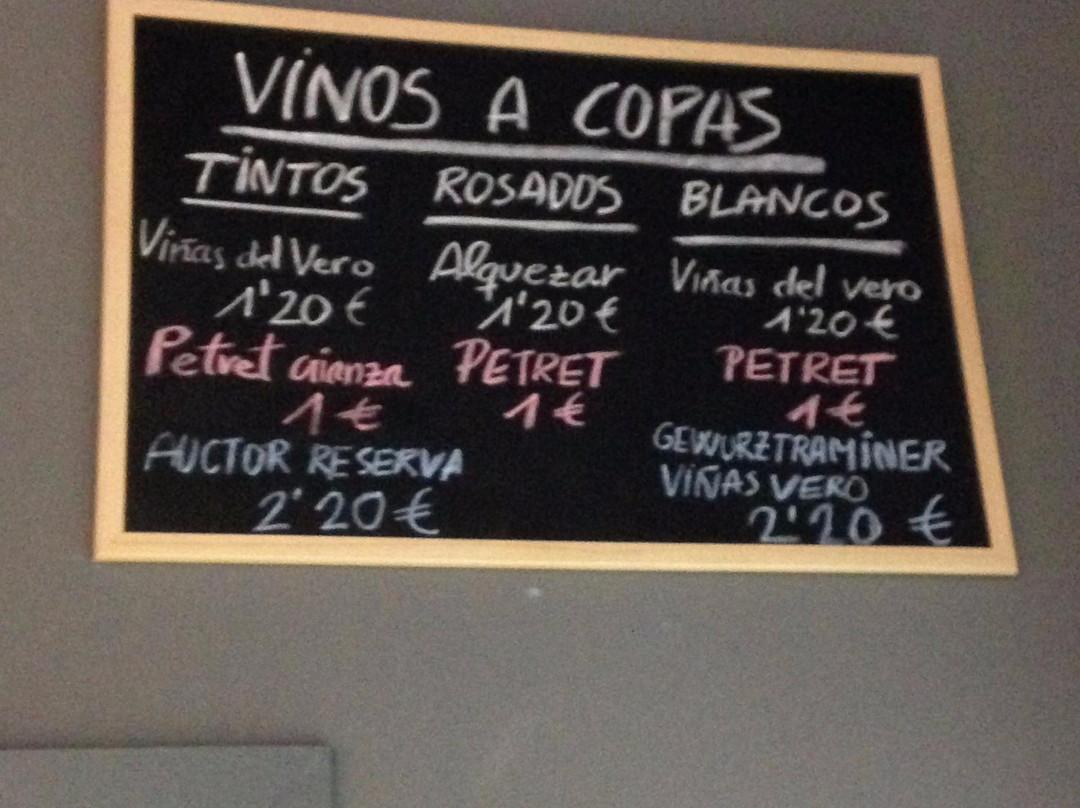 VINOS A COPAS
TINTOS
Viñas del Vero
1'20 €
Petret crianza
1 €
AUCTOR RESERVA
2'20 €
ROSADOS
Alquezar
1'20 €
PETRET
1 €
BLANCOS
Viñas del vero
1'20 €
PETRET
1 €
GEWURZTRAMINER
VIÑAS VERO
2'20 €